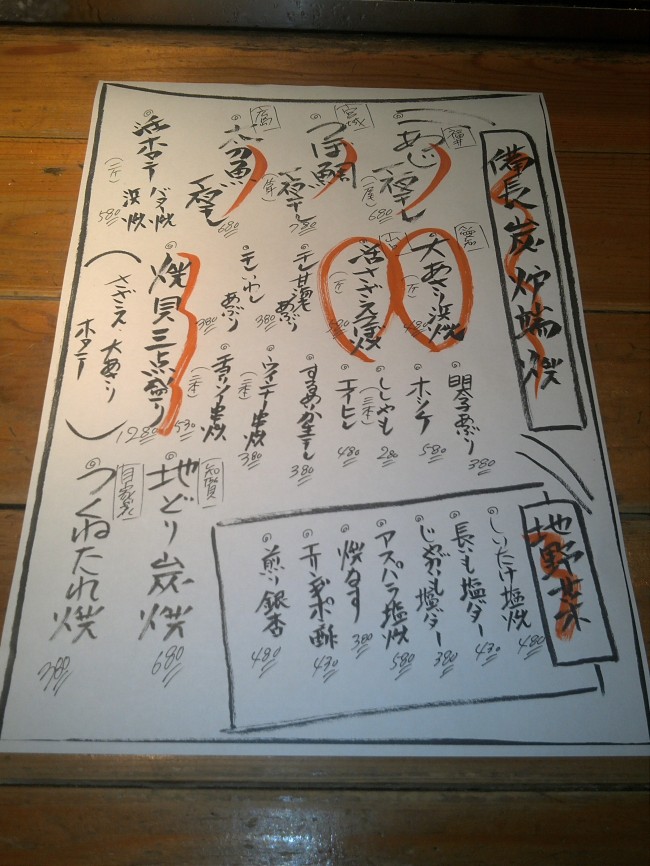 備長炭炉端焼
福井
あじ
一夜干し
(一尾)
680
宮城
つぼ鯛
一夜干し
780
広島
太刀魚
一夜干し
680
活ホタテ
バター焼
浜焼
580
愛知
大あさり浜焼
480
活さざえつぼ焼
干し甘海老
あぶり
380
干しいわし
あぶり
380
焼貝三点盛り
さざえ 大あさり
ホタテ
1280
明太子あぶり
380
ホッケ
580
ししゃも
(三本)
280
エイヒレ
480
するめいか丸干し
380
ウインナー串焼
(二本)
380
香りソーセージ串焼
530
地野菜
しいたけ塩焼
480
長いも塩バター
430
じゃがいも塩バター
380
アスパラ塩焼
580
焼なす
380
エリンギポン酢
430
煎り銀杏
480
地どり炭焼
680
自家製
つくねたれ焼
380